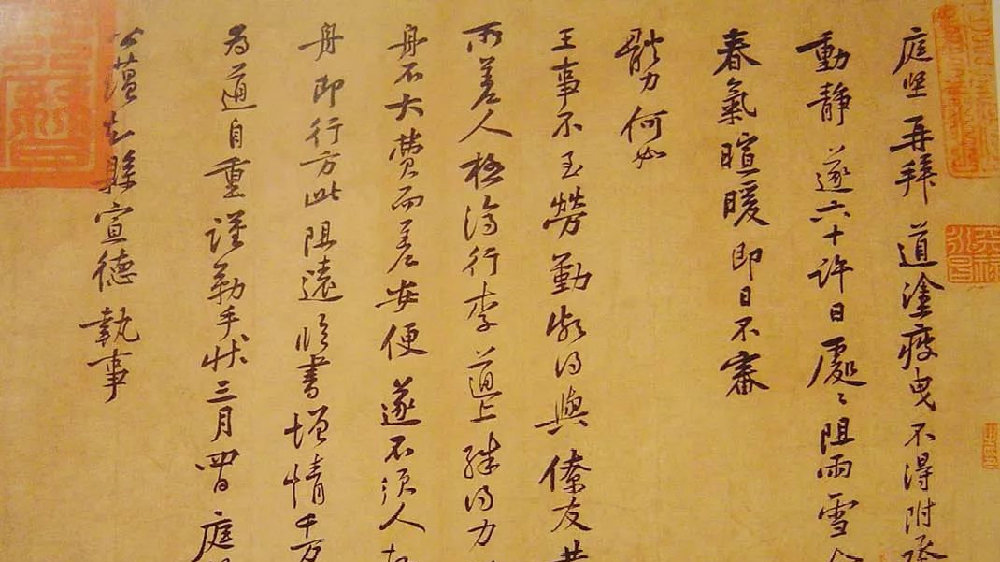 庭堅再拜道塗疲曳不得附承
動靜遂六十許日處〻阻雨雪
春氣暄暖即日不審
體力何如
王事不至勞勤頗得與僚友共
所差人極濟行李道上殊得力
舟不大費而差安便遂不須人
舟即行方此阻遠臨書增情千万
為道自重謹勒手狀三月四日庭
知縣宣德執事